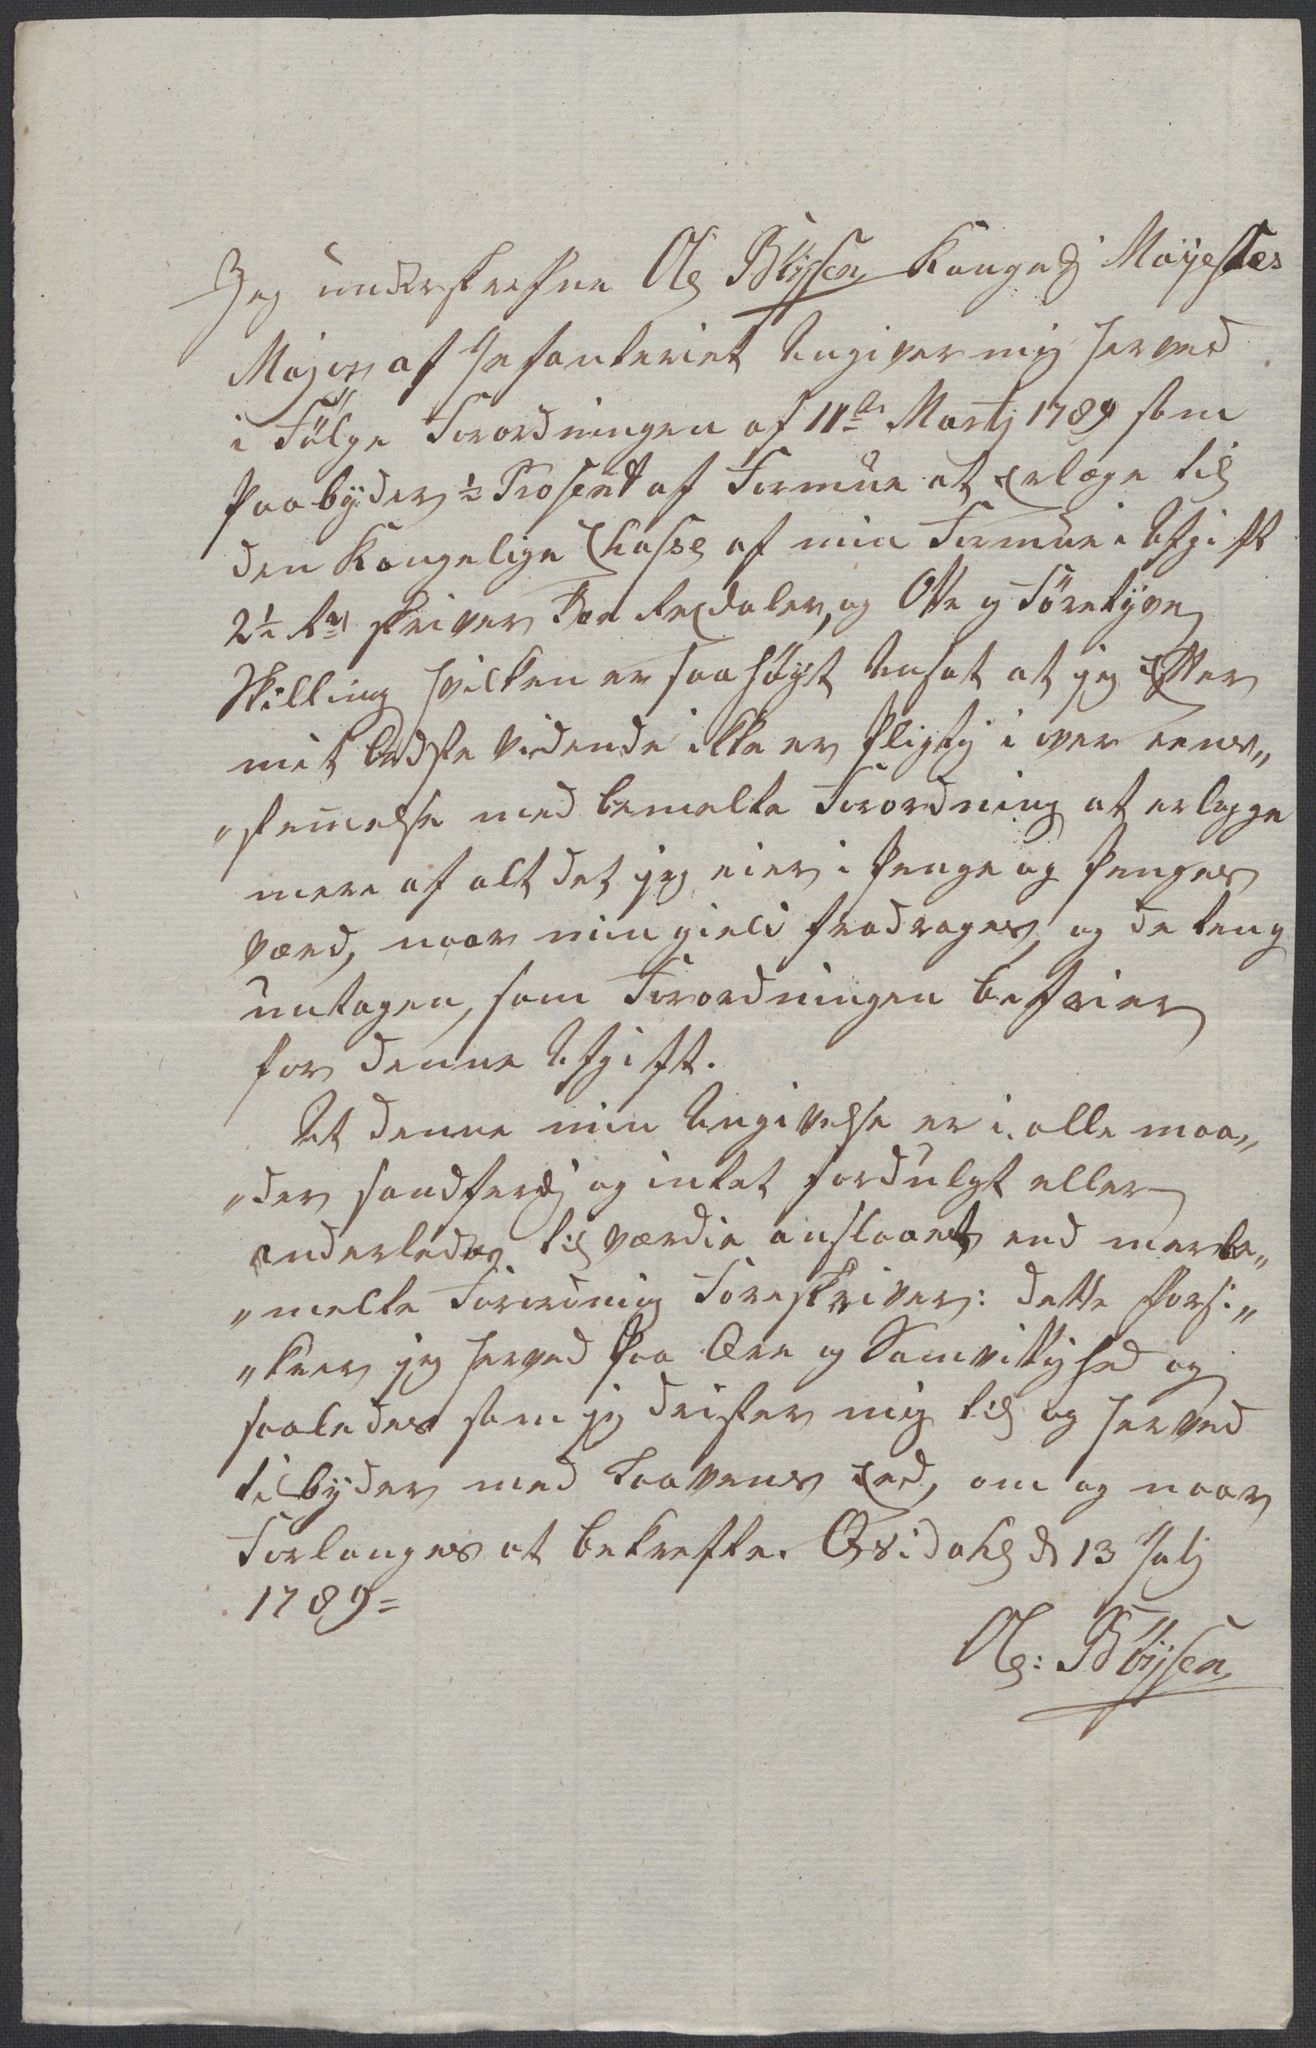 Jeg underskrefne Ole Böyssen Kongel Mayestæs
Major af Infanteriet Angiver mig herved
i Fölge Forordningen af 11te Martj 1789 som
paabyder ½ Prosent af Formue at Erlæge til
den Kongelige Chasse af min Formue i Afgift
2½ Rd skriver Toe Rexdaler, og Otte og Företyve
Skilling hvilken er saa höyt Ansat at jeg Efter
mit bedste vidende ikke er pligtig i over eens„
„stem̄else med bemelte Forordning at erlegge
mere af alt det jeg eier i Penge og Penges
værd, naar min gield fradrages, og de ting
untagen, som Forordningen befrier
for denne Afgift.
At denne min Angivelse er i alle maa„
„der sandferdig og intet fordulgt eller
anderledes til værdie anslaaet end merbe„
„melte Forordning Foreskriver: dette forsi„
„krer jeg herved paa Ære og Samvittighed og
saaledes som jeg drister mig til og herved
tilbyder med Laavens Eed, om og naar
Forlanges at bekrefte. d 13 Julj
1789=
Ole: Böyssen